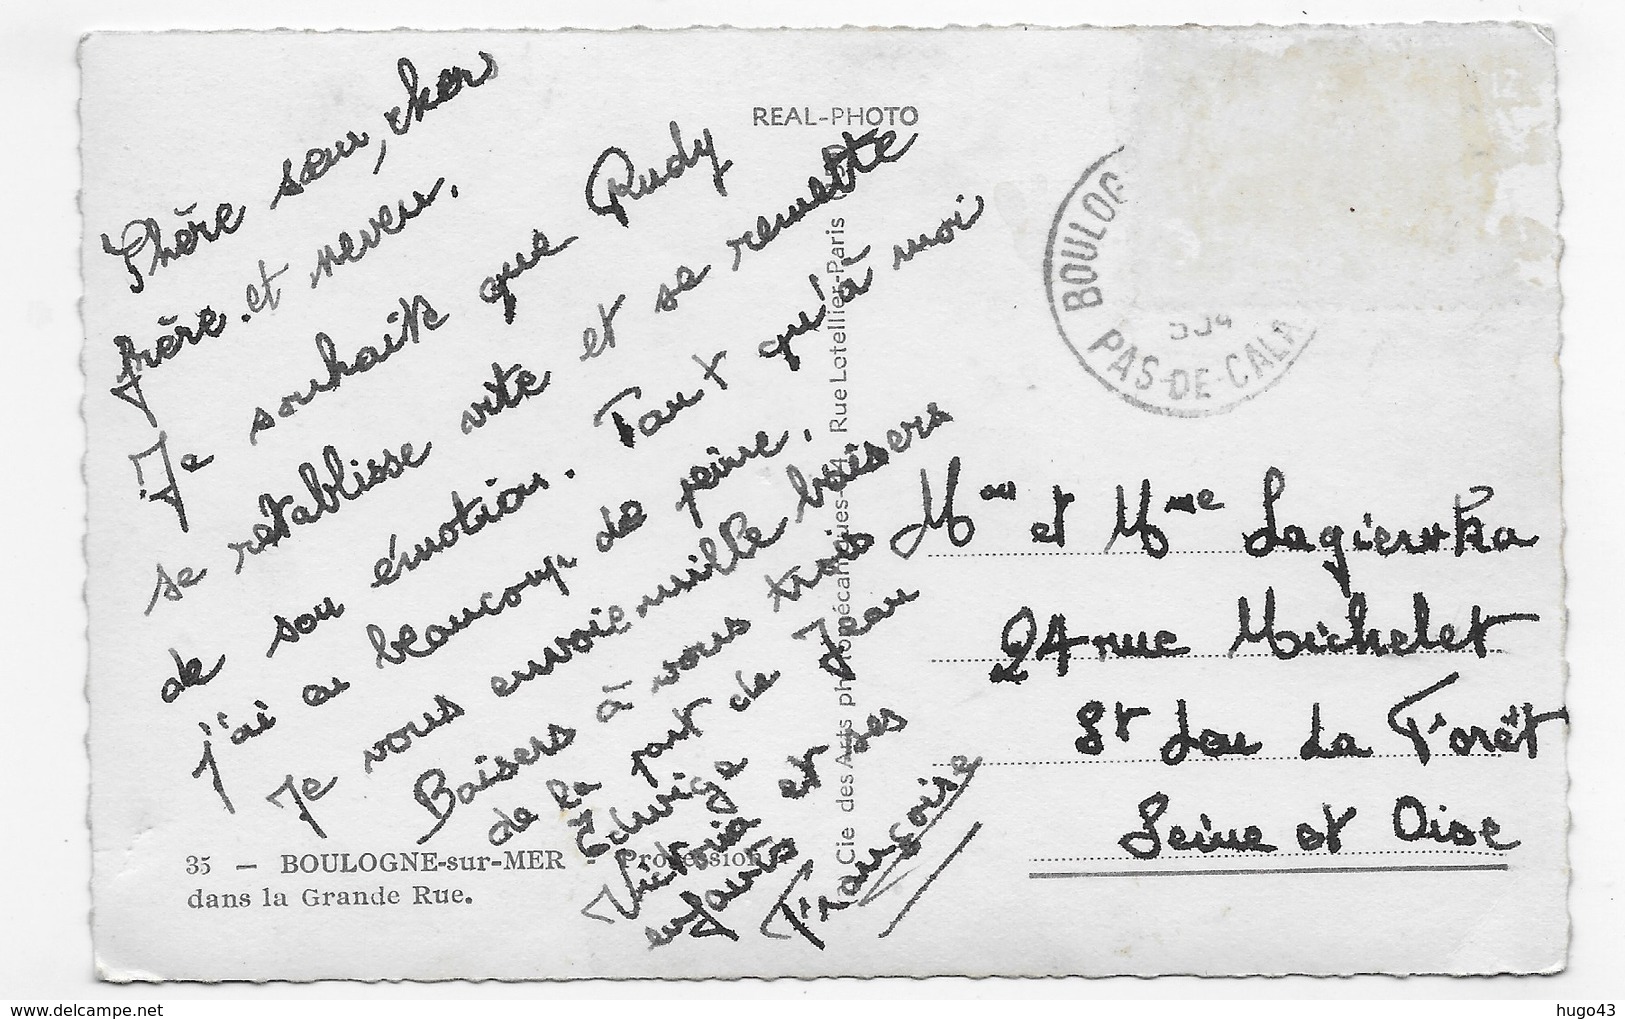 Chère sœur, chers
frère. et neveu.
Je souhaite que Rudy
se retablisse vite et se remette
de son émotion. Tant qu'à moi
j'ai eu beaucoup de peine.
Je vous envoie mille baisers
Baisers à vous trois
de la part de Jean
Edwige
Victoria et ses
enfants
Françoise
REAL-PHOTO
Cie des Arts photomécaniques- Rue Lotellier-Paris
BOULOG
PAS-DE-CALA
Mr et Mme
24 rue Michelet
St Leu La Forêt
Seine et Oise
35 — BOULOGNE-sur-MER - Procession
dans la Grande Rue.
hugo43